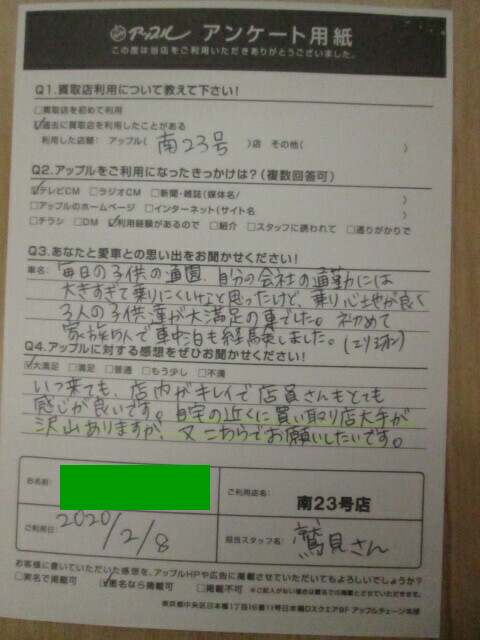 アップル アンケート用紙
この度は当店をご利用いただきありがとうございました。
Q1.買取店利用について教えて下さい!
□買取店を初めて利用
☑過去に買取店を利用したことがある
利用した店舗: アップル( 南23号 )店 その他( )
Q2.アップルをご利用になったきっかけは?(複数回答可)
☑テレビCM □ラジオCM □新聞・雑誌(媒体名/ )
□アップルのホームページ □インターネット(サイト名 )
□チラシ □DM ☑利用経験があるので □紹介 □スタッフに誘われて □通りがかりで
Q3.あなたと愛車との思い出をお聞かせください!
車名: 毎日の子供の通園、自分の会社の通勤には
大きすぎて乗りにくいなと思ったけど、乗り心地が良く
3人の子供達が大満足の車でした。初めて
家族5人で車中泊も経験しました。(エリシオン)
Q4.アップルに対する感想をぜひお聞かせください!
☑大満足 □満足 □普通 □もう少し □不満
いつ来ても、店内がキレイで店員さんもとても
感じが良いです。自宅の近くに買い取り店大手が
沢山ありますが、又こちらでお願いしたいです。
お名前:
ご利用店名: 南23号店
ご利用日: 2020/2/8
担当スタッフ名: 鷲見さん
お客様に書いていただいた感想を、アップルHPや広告に掲載させていただいてもよろしいでしょうか?
□実名で掲載可 ☑匿名なら掲載可 □掲載不可 ※ご記入がない場合は匿名での掲載とさせていただきます。
東京都中央区日本橋1丁目16番11号日本橋Dスクエア8F アップルチェーン本部